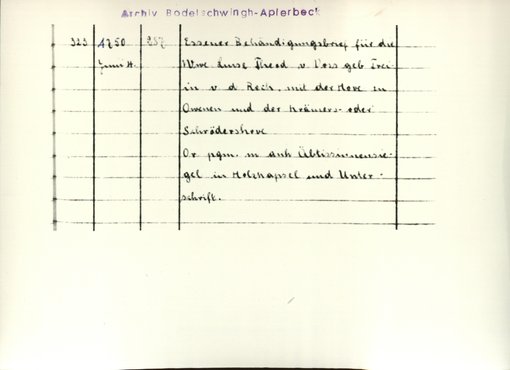 Archiv Bodelschwingh-Aplerbeck
323 1750 257 Essener Behändigungsbrief für die
Juni 4. Wwe Luise Theod v Voss geb Frei-
in v d Reck, mit der Hove zu
Owenen und der Krämers- oder
Schrödershove
Or pgm. m anh Äbtissinnensie-
gel in Holzkapsel und Unter-
schrift.